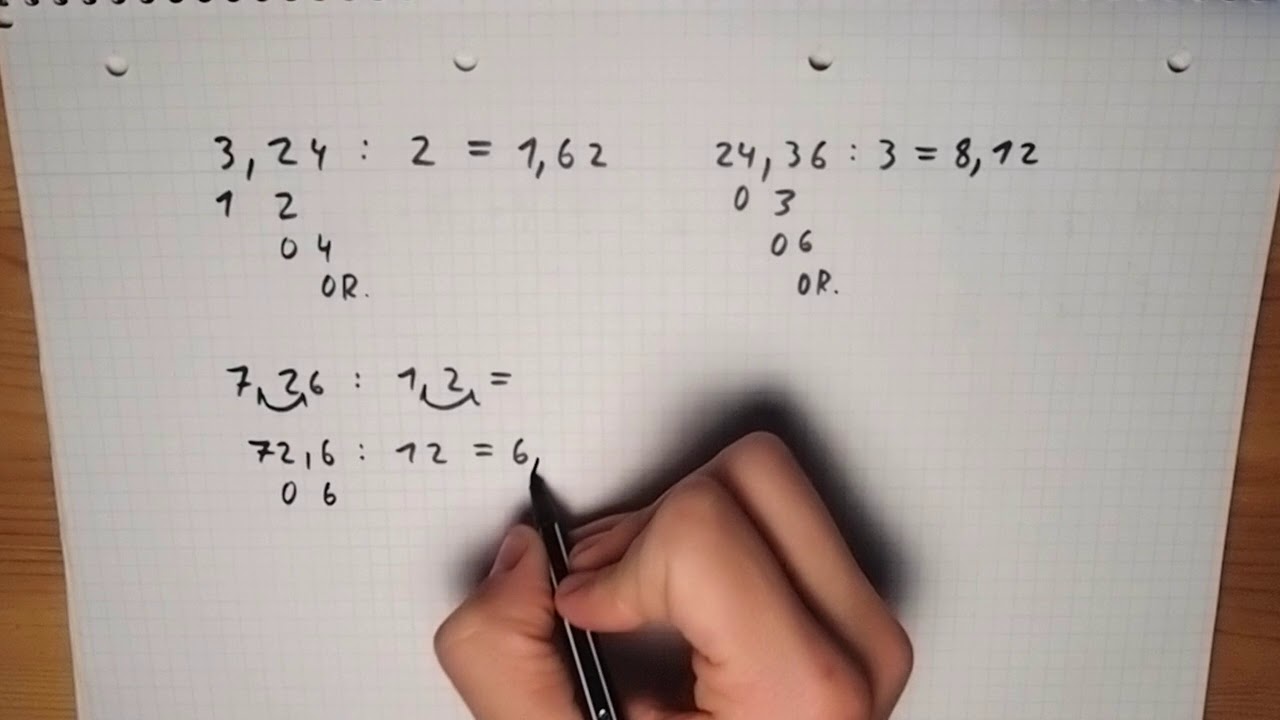 3,24 : 2 = 1,62
1 2
0 4
0R.
24,36 : 3 = 8,12
0 3
0 6
0R.
7,26 : 1,2, =
72,6 : 12 = 6,
0 6